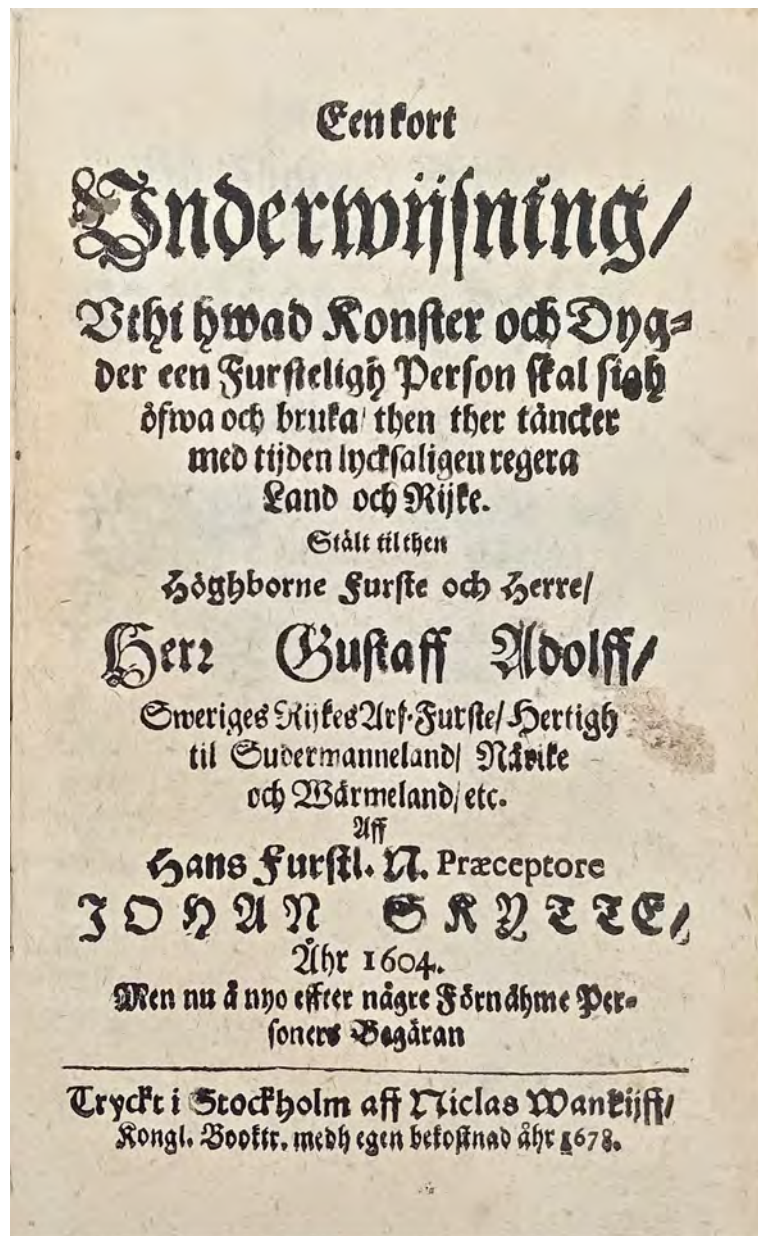 Een kort
Vnderwijsning/
Vthi hwad Konster och Dyg=
der een Fursteligh Person skal sigh
öfwa och bruka/ then ther täncker
med tijden lycksaligen regera
Land och Rijke.
Stält til then
Höghborne Furste och Herre/
Herr Gustaff Adolff/
Sweriges Rijkes Arf-Furste/ Hertigh
til Sudermanneland/ Närike
och Wärmeland/ etc.
Aff
Hans Furstl. N. Præceptore
JOHAN SKYTTE/
Åhr 1604.
Men nu å nyo effter någre Förnähme Per=
soners Begäran
Tryckt i Stockholm aff Niclas Wankijff/
Kongl. Booktr. medh egen bekostnad åhr 1678.